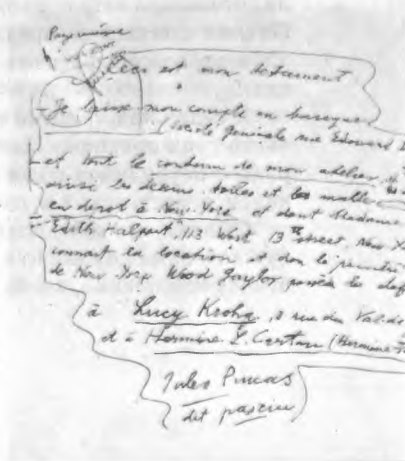 Ceci est mon testament
- Je laisse mon compte en banque
(Société générale rue Edouard
- et tout le contenu de mon atelier
ainsi les dessins toiles et malle
en depot à New-York et dont Madame
- Edith Halpert, 113 West 13th street, New Y
connait la location et don le peintre
de New York Wood Gaylor possède la clef
à Lucy Krohg, rue du Val de
et à Hermine L. Cartan (Hermine
Jules Pincas
dit pascin